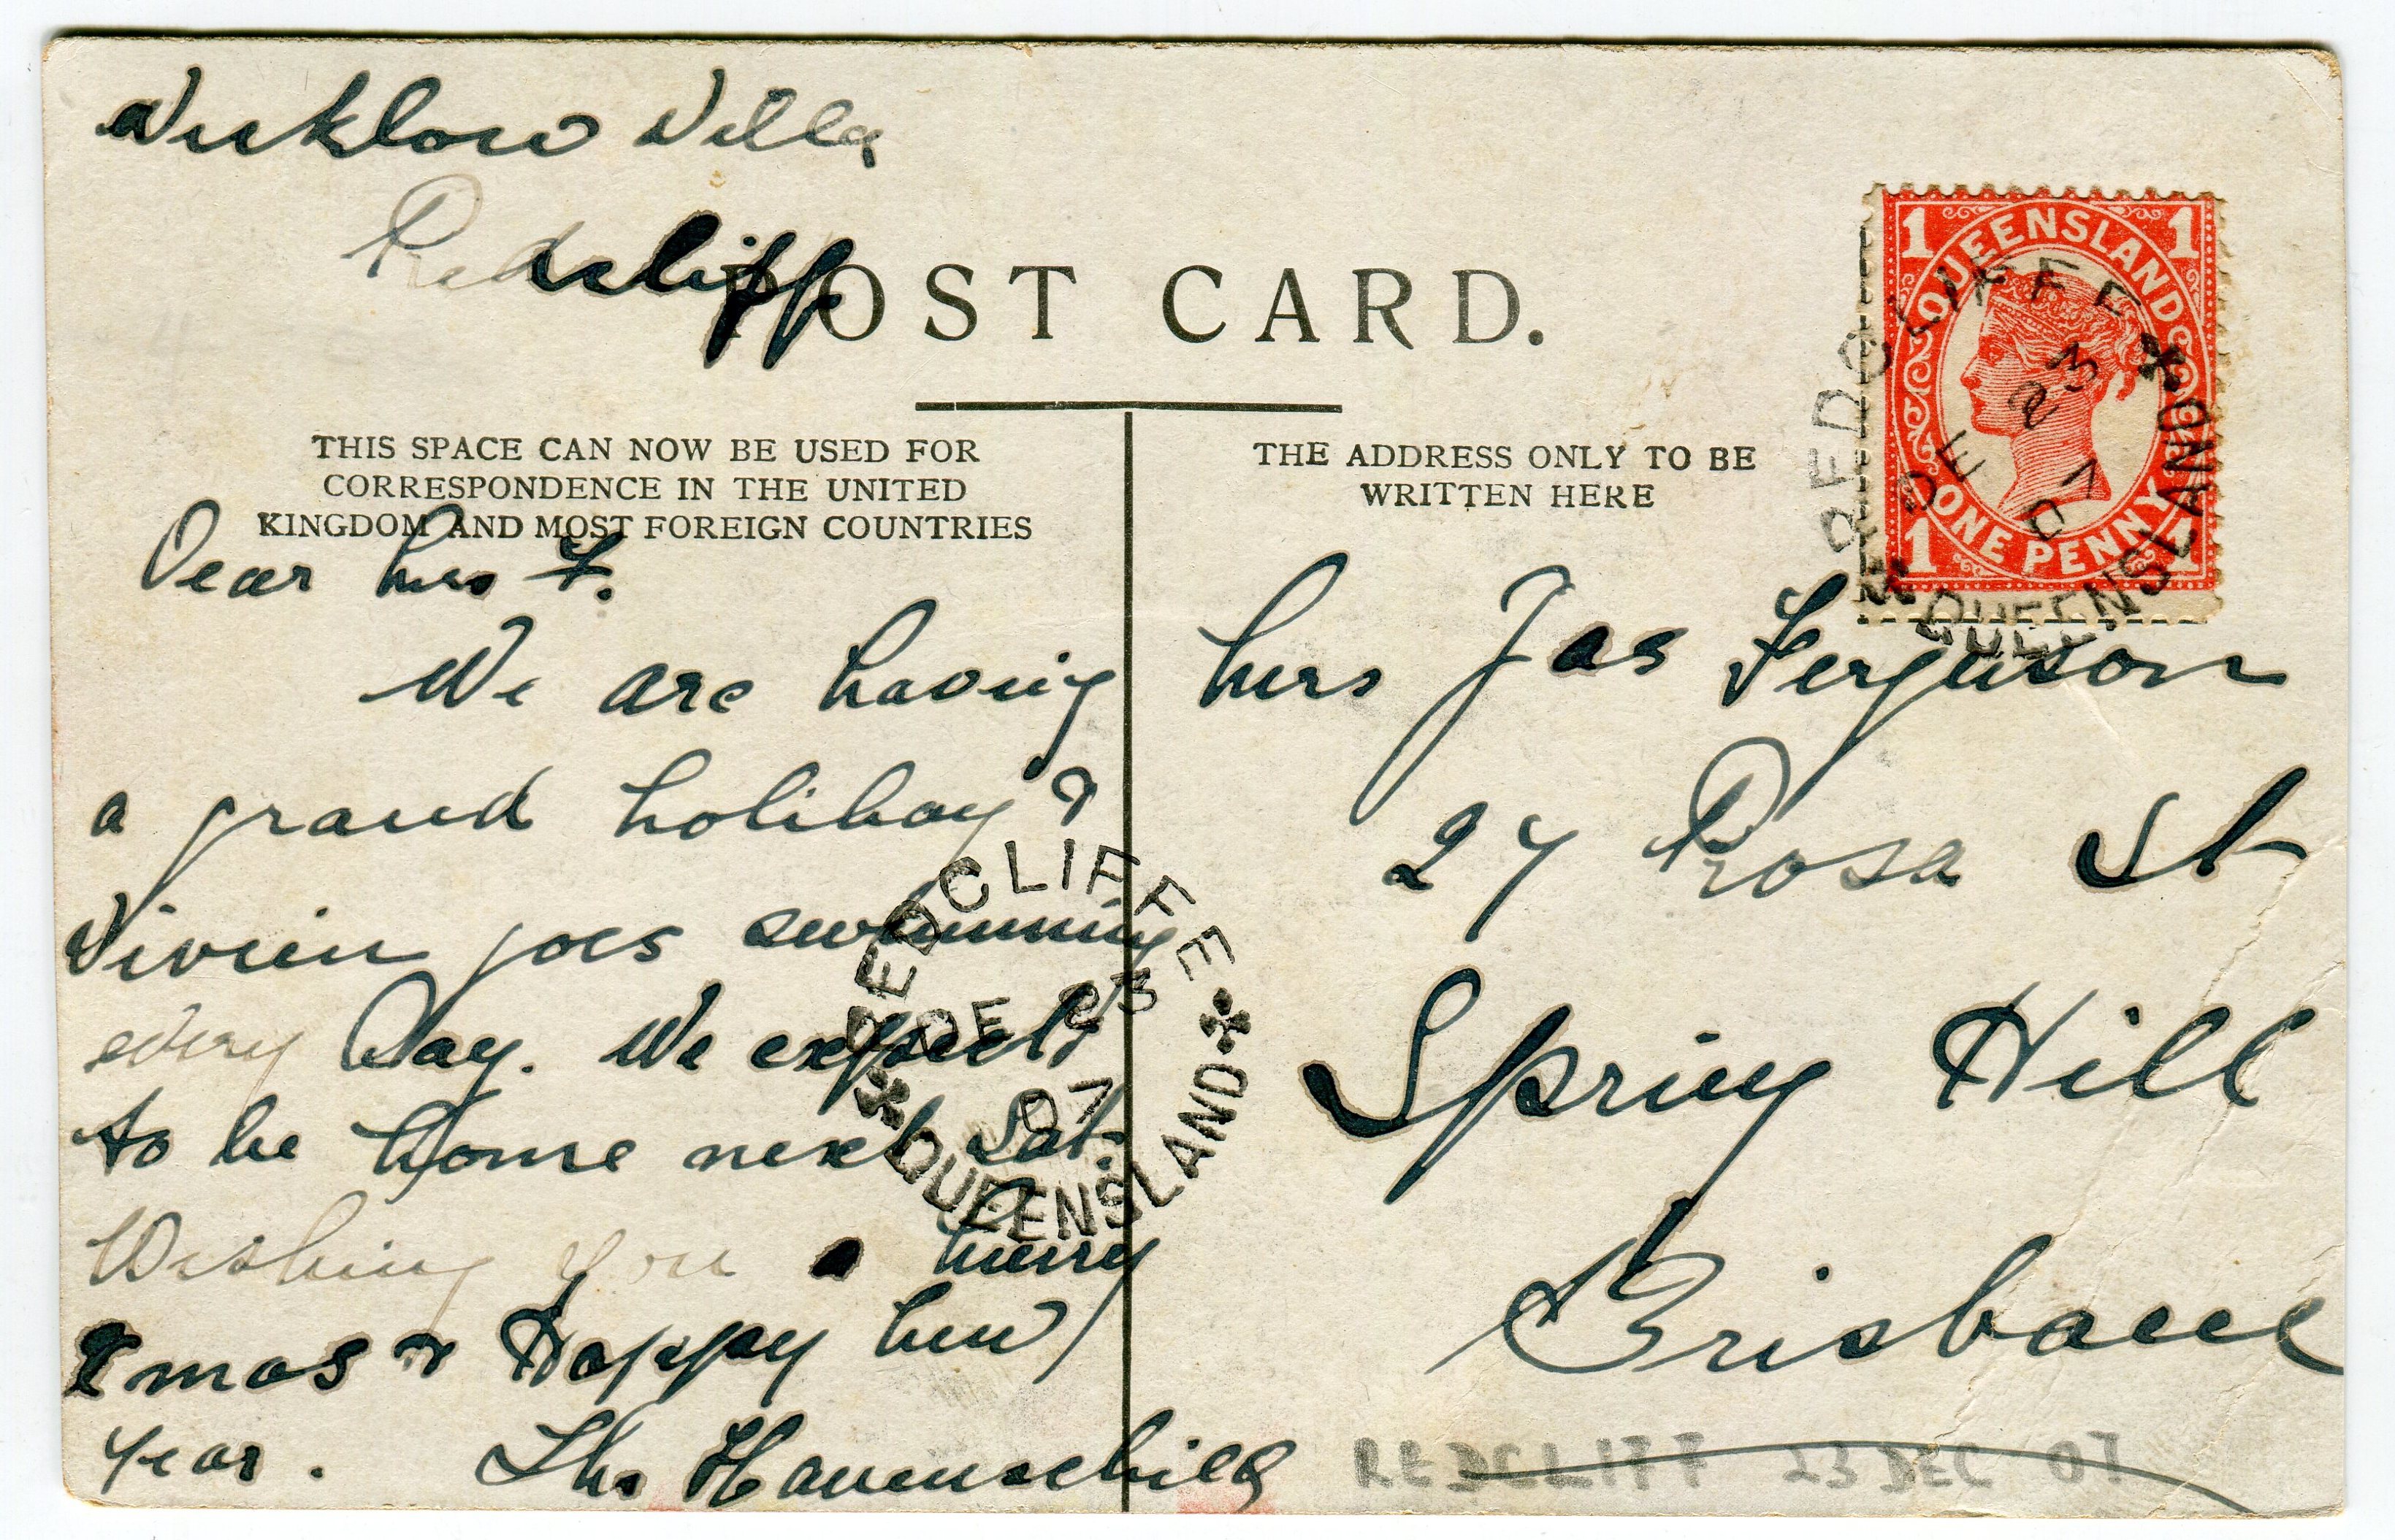 Wicklow Villa
Redcliff
POST CARD.
THIS SPACE CAN NOW BE USED FOR
CORRESPONDENCE IN THE UNITED
KINGDOM AND MOST FOREIGN COUNTRIES
Dear Mrs F.
We are having
a grand holiday &
Vivien goes swimming
every Day. We expect
to be home next Sat.
Wishing you a Merry
Xmas & Happy New
Year.
THE ADDRESS ONLY TO BE
WRITTEN HERE
Mrs Jas Ferguson
27 Rosa St
Spring Hill
Brisbane
1 QUEENSLAND 1
1 ONE PENNY 1
REDCLIFFE
DE 23
07
QUEENSLAND
REDCLIFFE
DE 23
07
QUEENSLAND
REDCLIFF 23 DEC 07